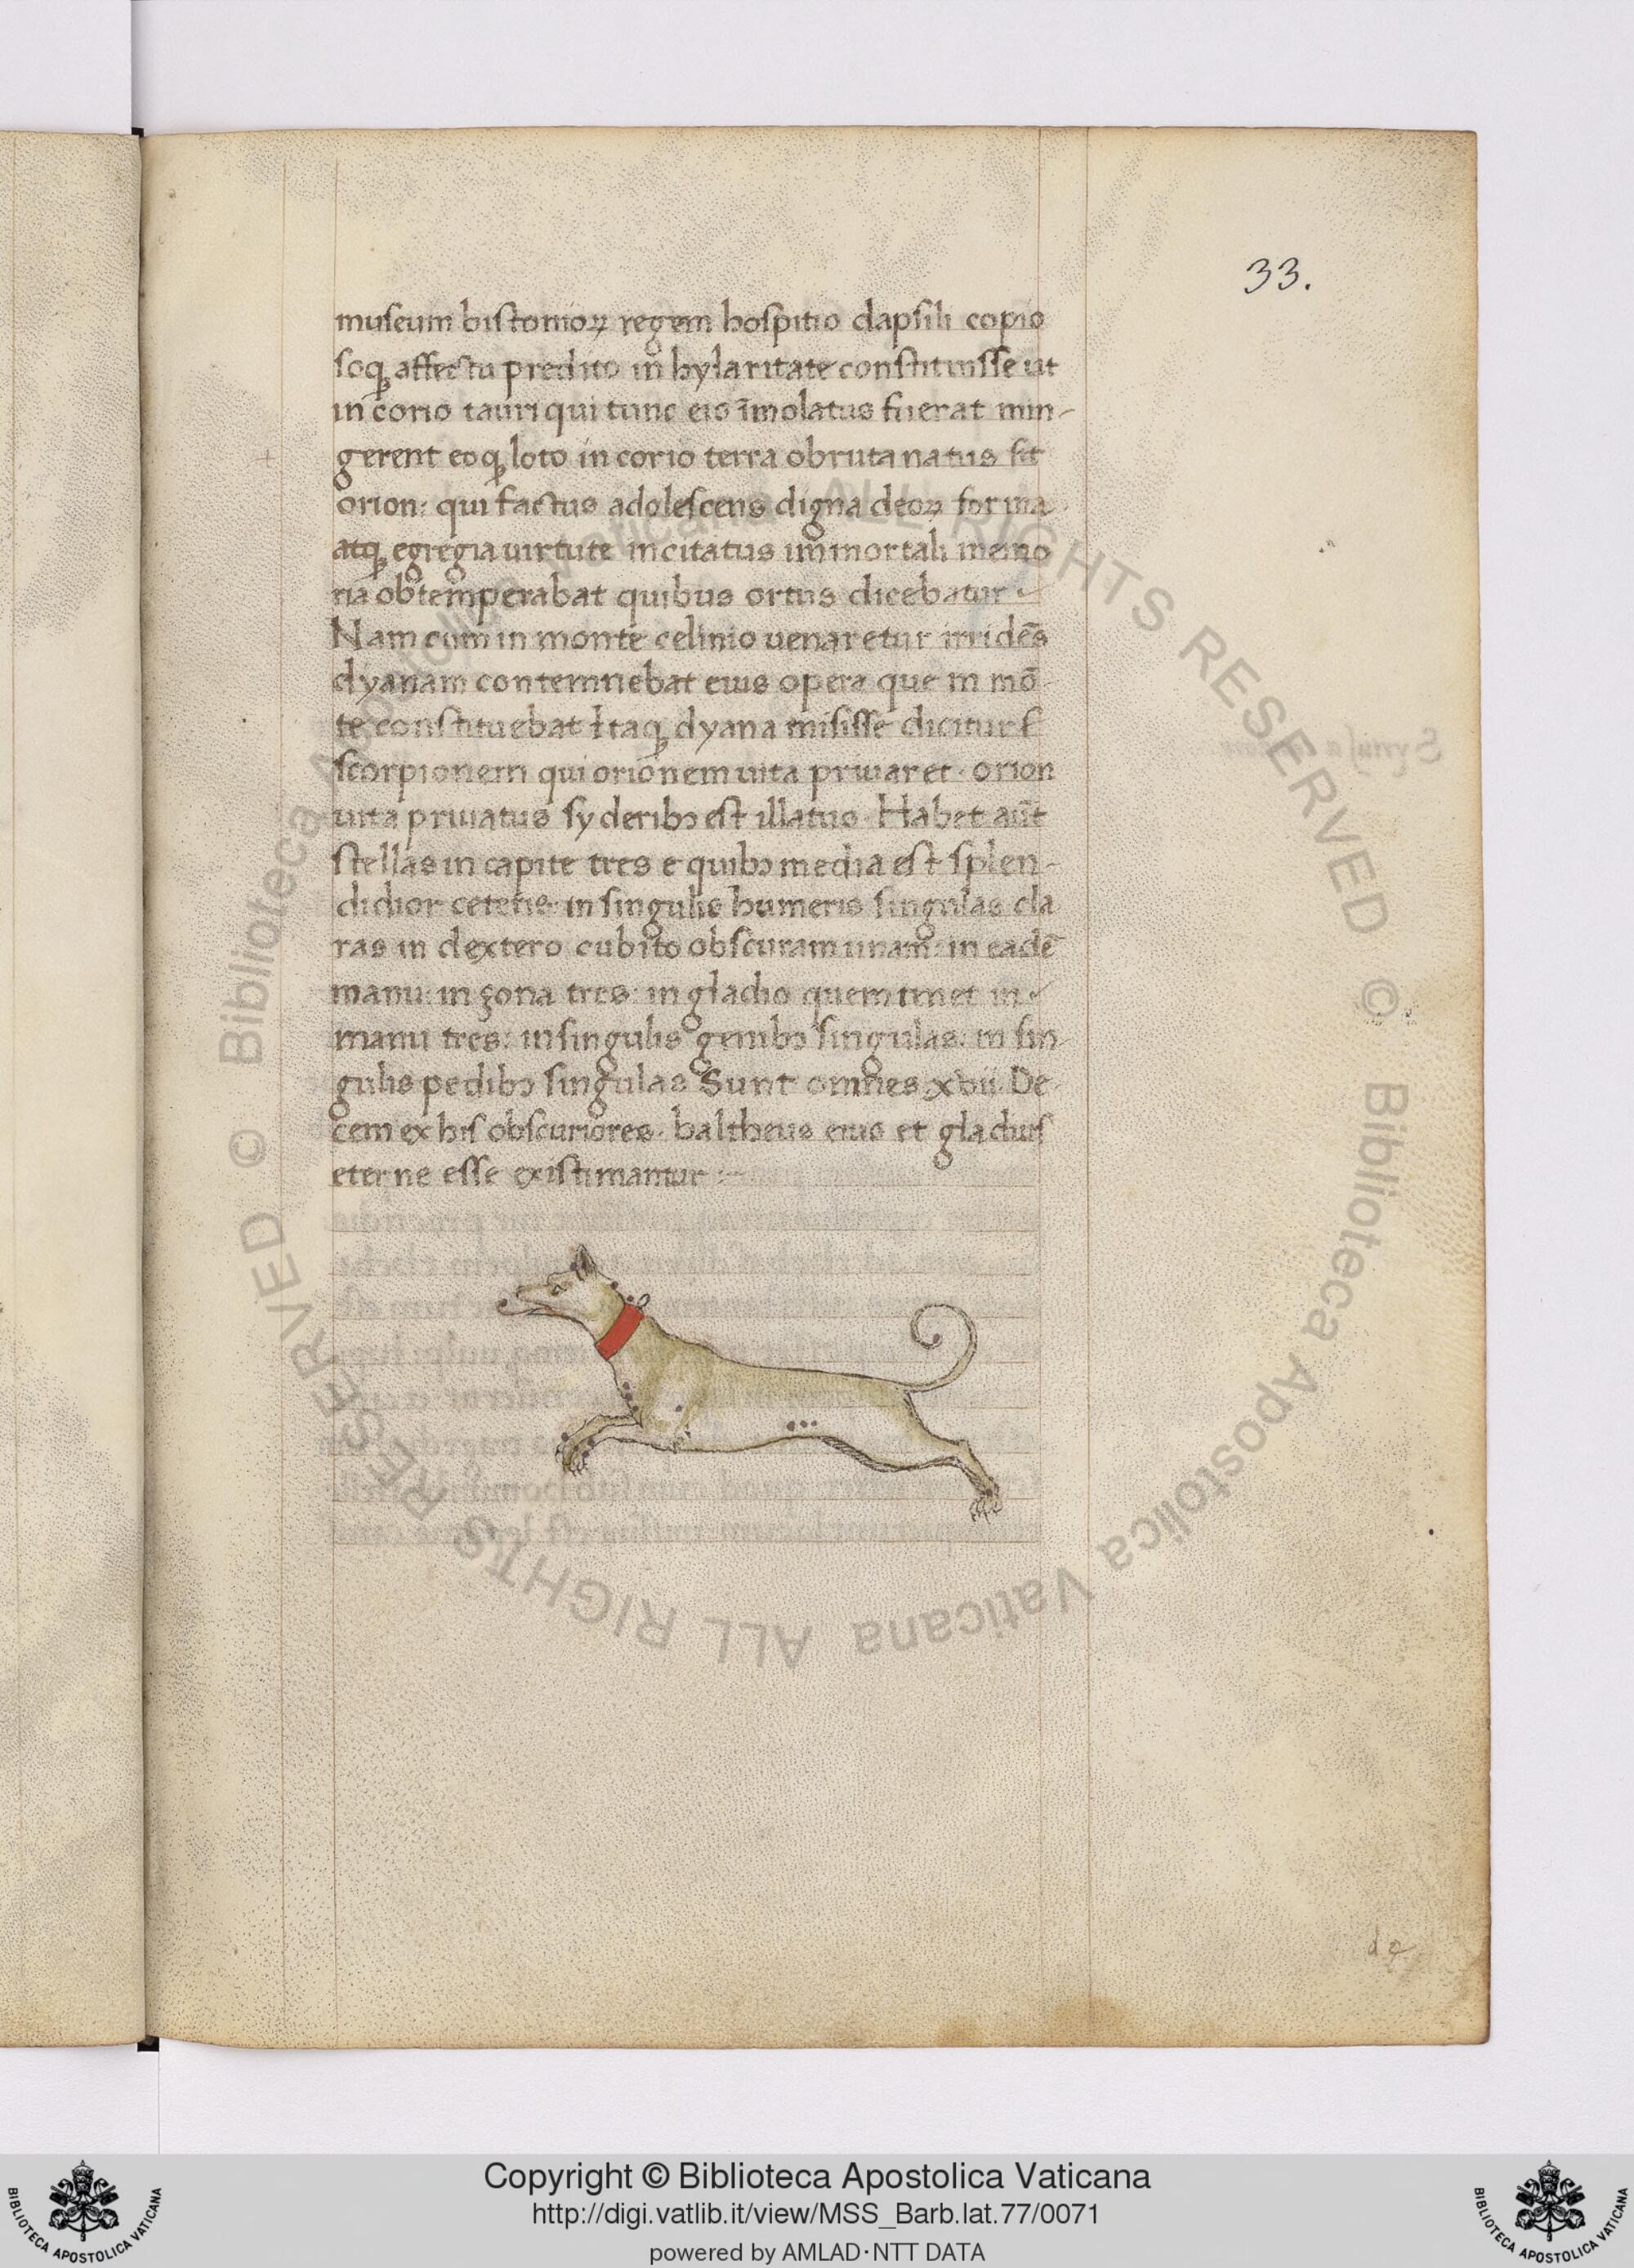 33.
museum bistonioꝝ regem hospitio dapsili copio
soqꝫ affectu predito in hylaritate constituisse ut
in corio tauri qui tunc eis īmolatus fuerat min-
gerent eoqꝫ loto in corio terra obruta natus sit
orion: qui factus adolescens digna deoꝝ forma
atqꝫ egregia uirtute incitatus immortali memo
ria obtemperabat quibus ortus dicebatur
Nam cum in monte celinio uenaretur irridēs
dyanam contemnebat eius opera que in mō
te constituebat Itaqꝫ dyana misisse dicitur s
scorpionem qui orionem uita priuaret · orion
uita priuatus syderibꝫ est illatus · Habet aūt
stellas in capite tres e quibꝫ media est splen-
didior ceteris: in singulis humeris singulas cla
ras in dextero cubito obscuram unam: in eadē
manu: in zona tres: in gladio quem tenet in
manu tres: in singulis genibꝫ singulas: in sin
gulis pedibꝫ singulas Sunt omnes xvii. De
cem ex his obscuriores · baltheus eius et gladius
eterne esse existimantur :-
Copyright © Biblioteca Apostolica Vaticana
http://digi.vatlib.it/view/MSS_Barb.lat.77/0071
powered by AMLAD·NTT DATA
BIBLIOTECA APOSTOLICA VATICANA
BIBLIOTECA APOSTOLICA VATICANA
© Biblioteca Apostolica Vaticana ALL RIGHTS RESERVED © Biblioteca Apostolica Vaticana ALL RIGHTS RESERVED